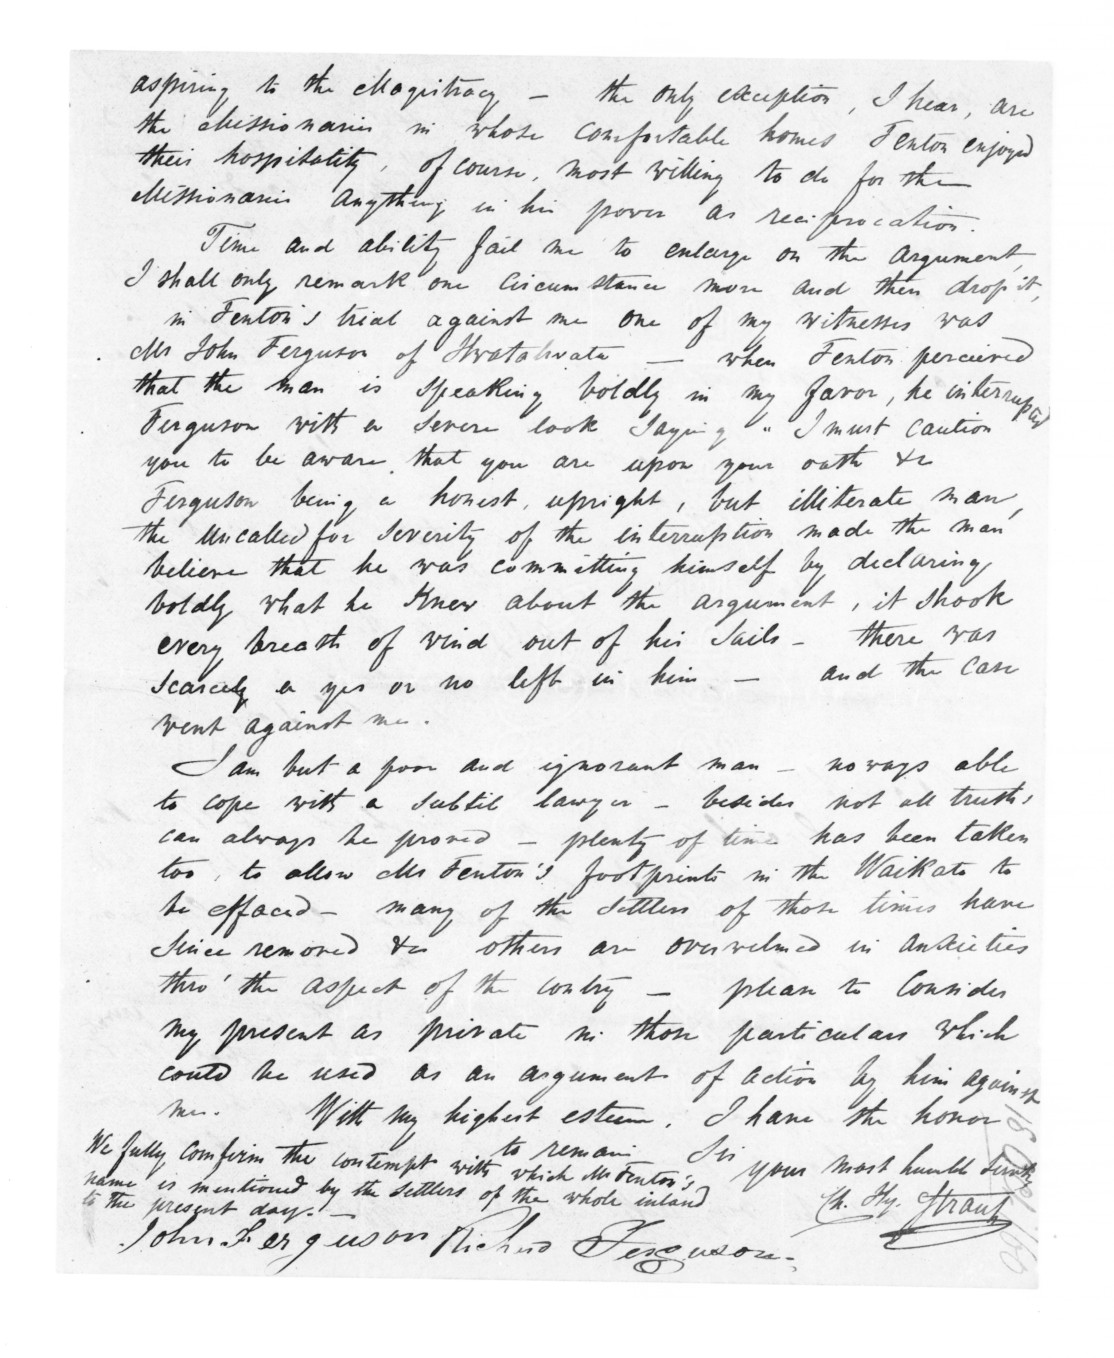 aspiring to the Magistracy — the only exception, I hear, are
the Missionaries in whose comfortable homes Fenton enjoyed
their hospitality, of course, most willing to do for the
Missionaries anything in his power as reciprocation.
Time and ability fail me to enlarge on the argument,
I shall only remark one circumstance more and then drop it,
in Fenton's trial against me one of my witnesses was
Mr John Ferguson of — when Fenton perceived
that the man is speaking boldly in my favor, he interrupted
Ferguson with a severe look saying "I must caution
you to be aware that you are upon your oath &c
Ferguson being a honest, upright, but illiterate man,
the uncalled for severity of the interruption made the man
believe that he was committing himself by declaring
boldly what he knew about the argument, it shook
every breath of wind out of his sails — there was
scarcely a yes or no left in him — and the case
went against me.
I am but a poor and ignorant man — noways able
to cope with a subtil lawyer — besides not all truths
can always be proved — plenty of time has been taken
too, to allow Mr Fenton's footprints in the Waikato to
be effaced — many of the settlers of those times have
since removed &c others are overwelmed in anxieties
thro' the aspect of the contry — please to consider
my present as private in those particulars which
could be used as an argument of action by him against
me. With my highest esteem, I have the honor
to remain Sir
your most humble Servt
Ch. Hy. Strauss
We fully comfirm the contempt with which Mr Fenton's
name is mentioned by the settlers of the whole inland
to the present day. —
John Ferguson Richard Ferguson